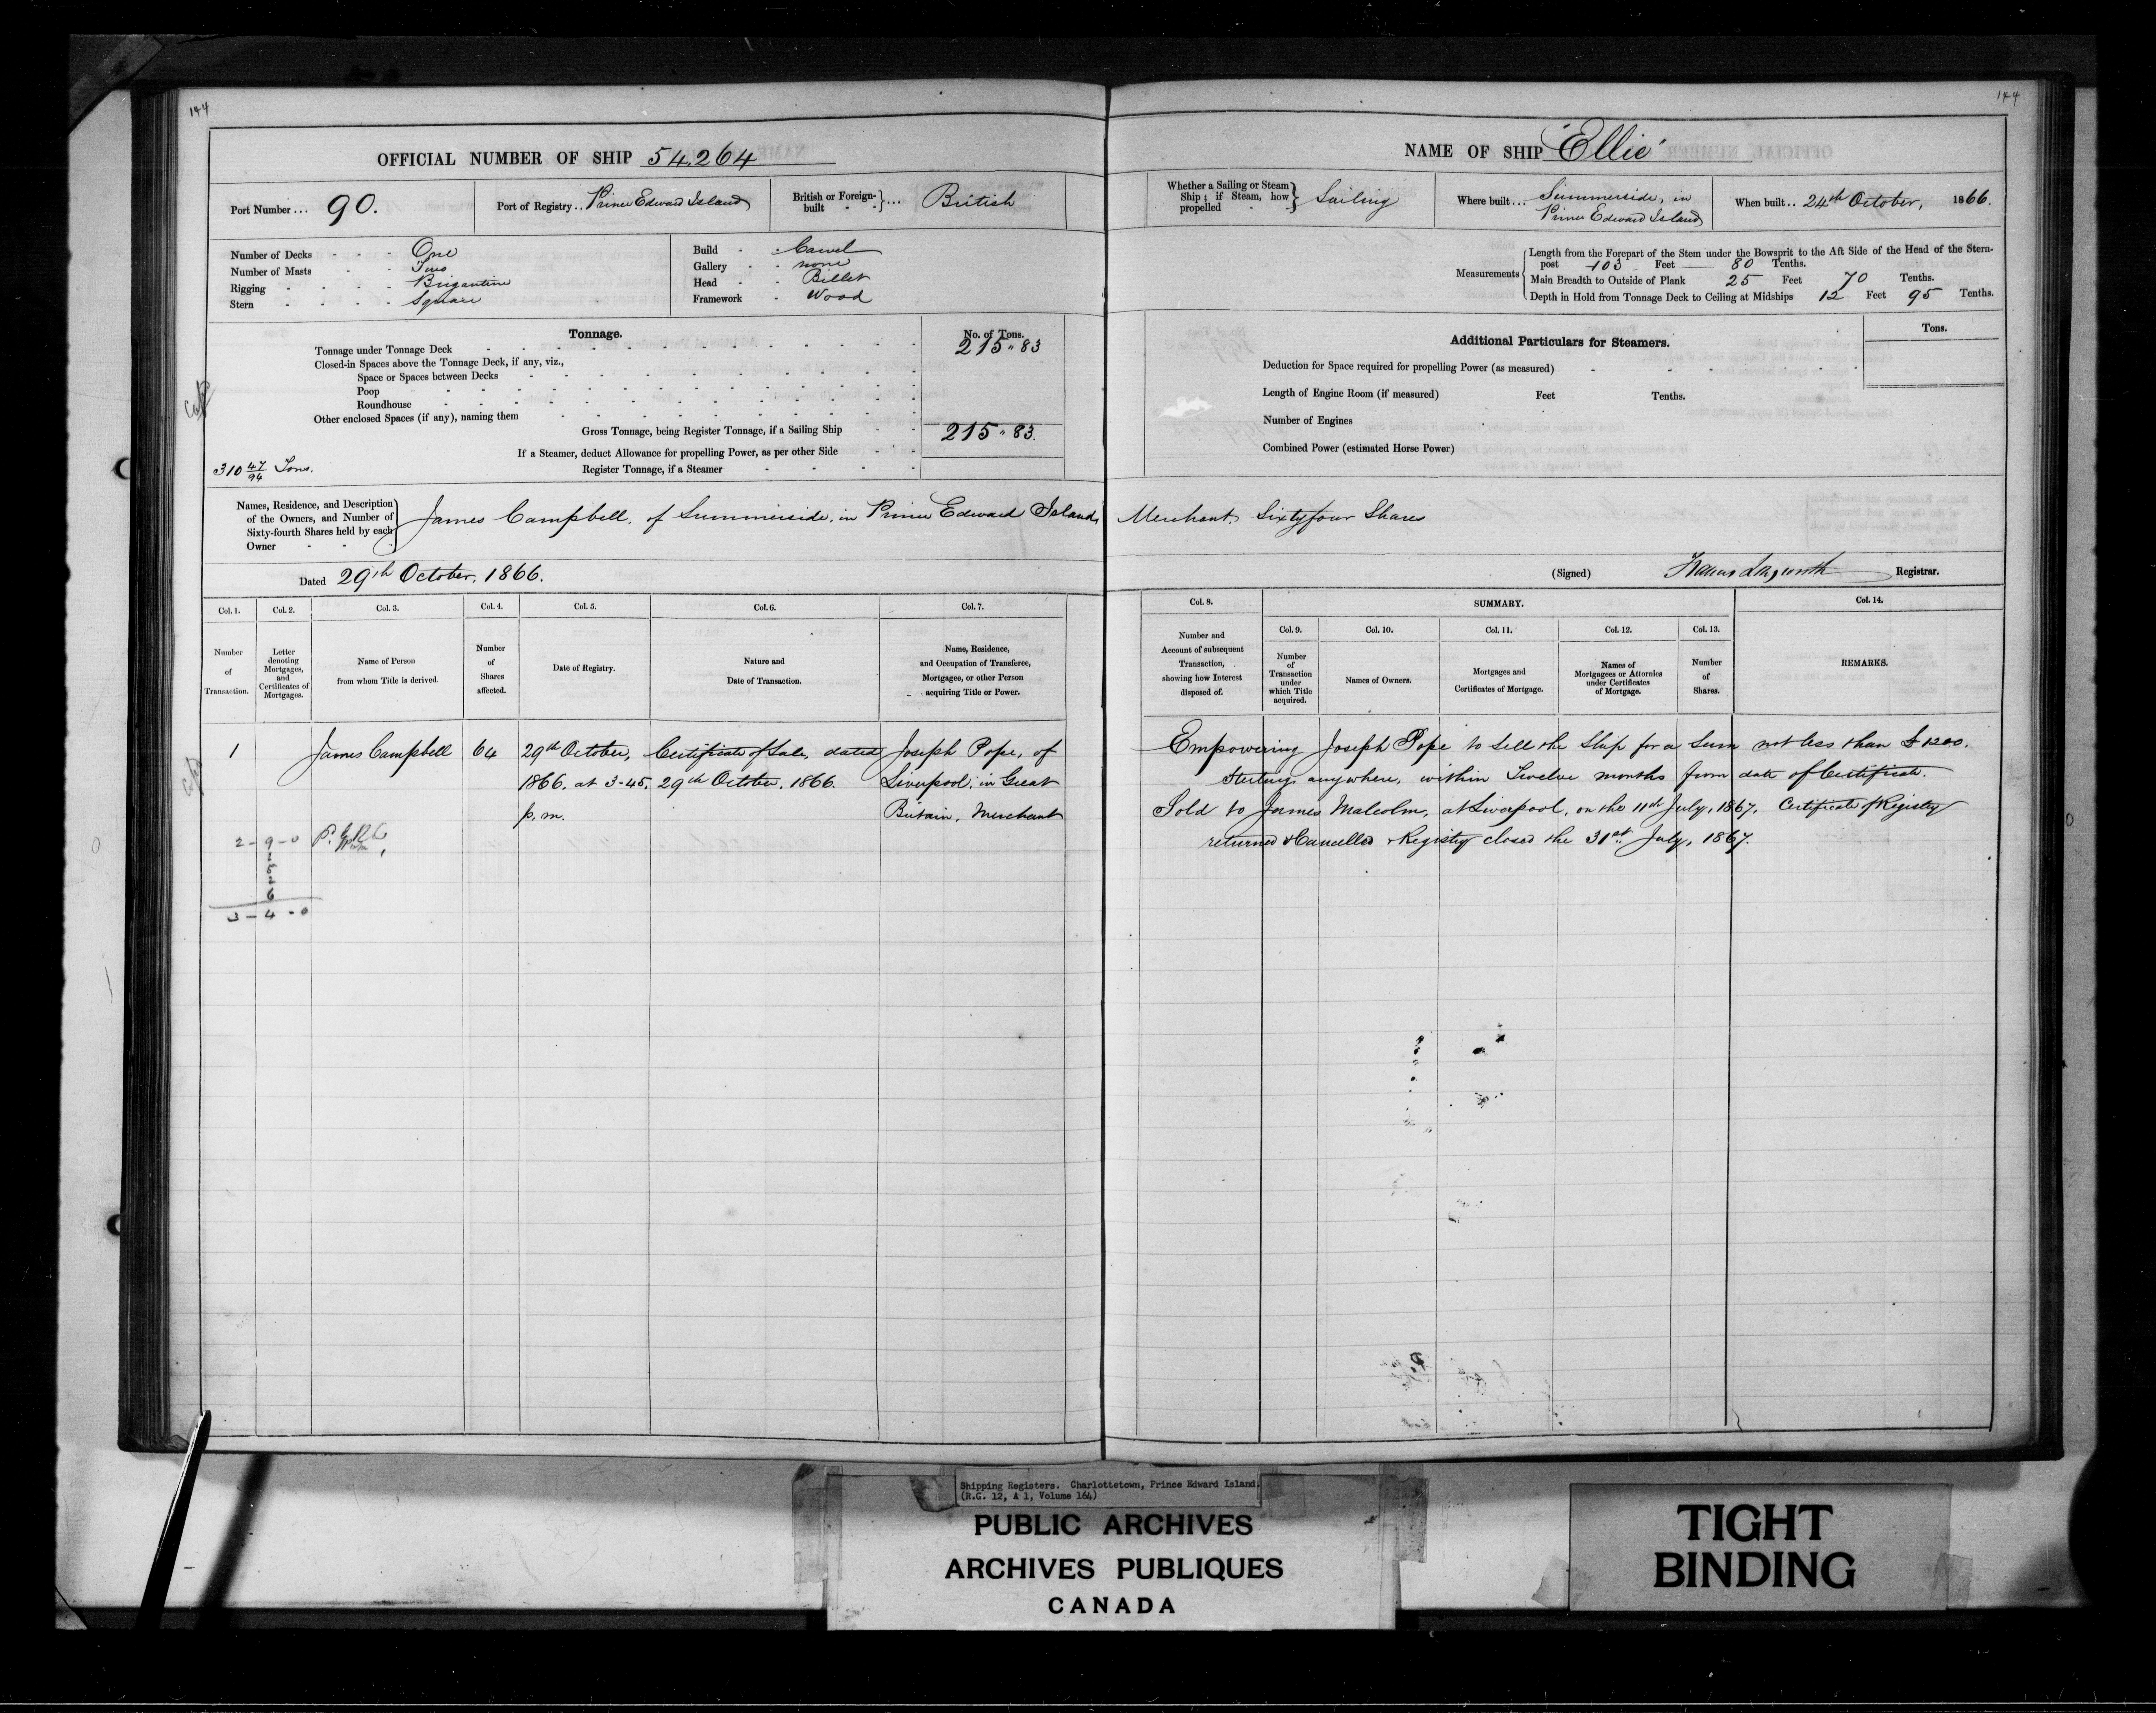 144
144
OFFICIAL NUMBER OF SHIP 54,264
Port Number... 90.
Port of Registry.. Prince Edward Island
British or Foreign-built }... British
Number of Decks - - - One
Number of Masts - - Two
Rigging - - - - Brigantine
Stern - - - - Square
Build - Carvel
Gallery - none
Head - Billet
Framework - Wood
Tonnage.
No. of Tons.
Tonnage under Tonnage Deck 215 " 83
Closed-in Spaces above the Tonnage Deck, if any, viz.,
Space or Spaces between Decks
Poop
Roundhouse
Other enclosed Spaces (if any), naming them
Gross Tonnage, being Register Tonnage, if a Sailing Ship 215 " 83.
If a Steamer, deduct Allowance for propelling Power, as per other Side
Register Tonnage, if a Steamer
310 47/94 Tons.
NAME OF SHIP "Ellie"
Whether a Sailing or Steam Ship; if Steam, how propelled } Sailing
Where built... Summerside, in
Prince Edward Island
When built.. 24th October, 1866.
Measurements
Length from the Forepart of the Stem under the Bowsprit to the Aft Side of the Head of the Stern-
post 103 Feet 80 Tenths.
Main Breadth to Outside of Plank 25 Feet 70 Tenths.
Depth in Hold from Tonnage Deck to Ceiling at Midships 12 Feet 95 Tenths.
Additional Particulars for Steamers.
Tons.
Deduction for Space required for propelling Power (as measured)
Length of Engine Room (if measured) Feet Tenths.
Number of Engines
Combined Power (estimated Horse Power)
Names, Residence, and Description
of the Owners, and Number of
Sixty-fourth Shares held by each
Owner
James Campbell, of Summerside, in Prince Edward Island, Merchant, Sixtyfour Shares
Dated 29th October, 1866.
(Signed) Registrar.
Col. 1. Col. 2. Col. 3. Col. 4. Col. 5. Col. 6. Col. 7.
Number
of
Transaction.
Letter
denoting
Mortgages,
and
Certificates of
Mortgages.
Name of Person
from whom Title is derived.
Number
of
Shares
affected.
Date of Registry.
Nature and
Date of Transaction.
Name, Residence,
and Occupation of Transferee,
Mortgagee, or other Person
acquiring Title or Power.
Col. 8. SUMMARY. Col. 14.
Col. 9. Col. 10. Col. 11. Col. 12. Col. 13.
Number and
Account of subsequent
Transaction,
showing how Interest
disposed of.
Number
of
Transaction
under
which Title
acquired.
Names of Owners.
Mortgages and
Certificates of Mortgage.
Names of
Mortgagees or Attornies
under Certificates
of Mortgage.
Number
of
Shares.
REMARKS.
1 James Campbell 64 29th October, Certificate of Sale, dated Joseph Pope, of
1866, at 3-45, 29th October, 1866. Liverpool, in Great
p.m. Britain, Merchant
2-9-0
6
3-4-0
Empowering Joseph Pope to sell the Ship for a Sum not less than £1200.
Sterling, anywhere, within Twelve months from date of Certificate.
Sold to James Malcolm, at Liverpool, on the 11th July, 1867. Certificate of Registry
returned & Cancelled & Registry closed the 31st July, 1867.
Shipping Registers. Charlottetown, Prince Edward Island.
(R.G. 12, A 1, Volume 164)
PUBLIC ARCHIVES
ARCHIVES PUBLIQUES
CANADA
TIGHT
BINDING